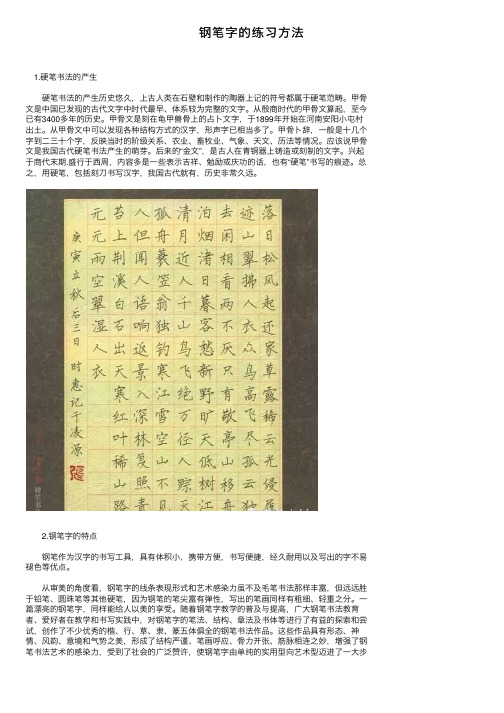 钢笔字的练习方法
1.硬笔书法的产生
硬笔书法的产生历史悠久，上古人类在石壁和制作的陶器上记的符号都属于硬笔范畴。甲骨
文是中国已发现的古代文字中时代最早、体系较为完整的文字。从殷商时代的甲骨文算起，至今
已有3400多年的历史。甲骨文是刻在龟甲兽骨上的占卜文字，于1899年开始在河南安阳小屯村
出土。从甲骨文中可以发现各种结构方式的汉字，形声字已相当多了。甲骨卜辞，一般是十几个
字到二三十个字，反映当时的阶级关系、农业、畜牧业、气象、天文、历法等情况。应该说甲骨
文是我国古代硬笔书法产生的萌芽。后来的“金文”，是古人在青铜器上铸造或刻制的文字。兴起
于商代末期.盛行于西周，内容多是一些表示吉祥、勉励或庆功的话，也有“硬笔”书写的痕迹。总
之，用硬笔，包括刻刀书写汉字，我国古代就有，历史非常久远。
落日松风起还家草露稀云光侵履
迹山翠拂人衣众鸟高飞尽孤云独
去闲相看两不厌只有敬亭山移舟
泊烟渚日暮客愁新野旷天低树江
清月近人千山鸟飞绝万径人踪灭
孤舟蓑笠翁独钓寒江雪空山不见
人但闻人语响返景入深林复照青
苔上荆溪白石出天寒红叶稀山路
元元雨空翠湿人衣
庚寅立秋后三日 时惠记于凌源
2.钢笔字的特点
钢笔作为汉字的书写工具，具有体积小，携带方便，书写便捷，经久耐用以及写出的字不易
褪色等优点。
从审美的角度看，钢笔字的线条表现形式和艺术感染力虽不及毛笔书法那样丰富，但远远胜
于铅笔、圆珠笔等其他硬笔，因为钢笔的笔尖富有弹性，写出的笔画同样有粗细、轻重之分。一
篇漂亮的钢笔字，同样能给人以美的享受。随着钢笔字教学的普及与提高，广大钢笔书法教育
者、爱好者在教学和书写实践中，对钢笔字的笔法、结构、章法及书体等进行了有益的探索和尝
试，创作了不少优秀的楷、行、草、隶、篆五体俱全的钢笔书法作品。这些作品具有形态、神
情、风韵、意境和气势之美，形成了结构严谨、笔画呼应、骨力开张、筋脉相连之妙，增强了钢
笔书法艺术的感染力，受到了社会的广泛赞许，使钢笔字由单纯的实用型向艺术型迈进了一大步